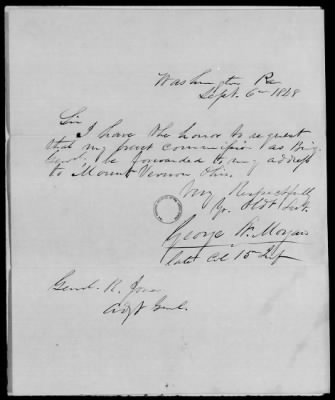 Washington Pa
Sept. 6th 1848
Sir
I have the honor to request
that my brevet commission as Brig.
Genl. be forwarded to my address
to Mount Vernon, Ohio.
Respectfully
Yr. Obt Svt.
George W. Morgan
late Col 15th Inf
Genl. R. Jones
Adjt Genl.